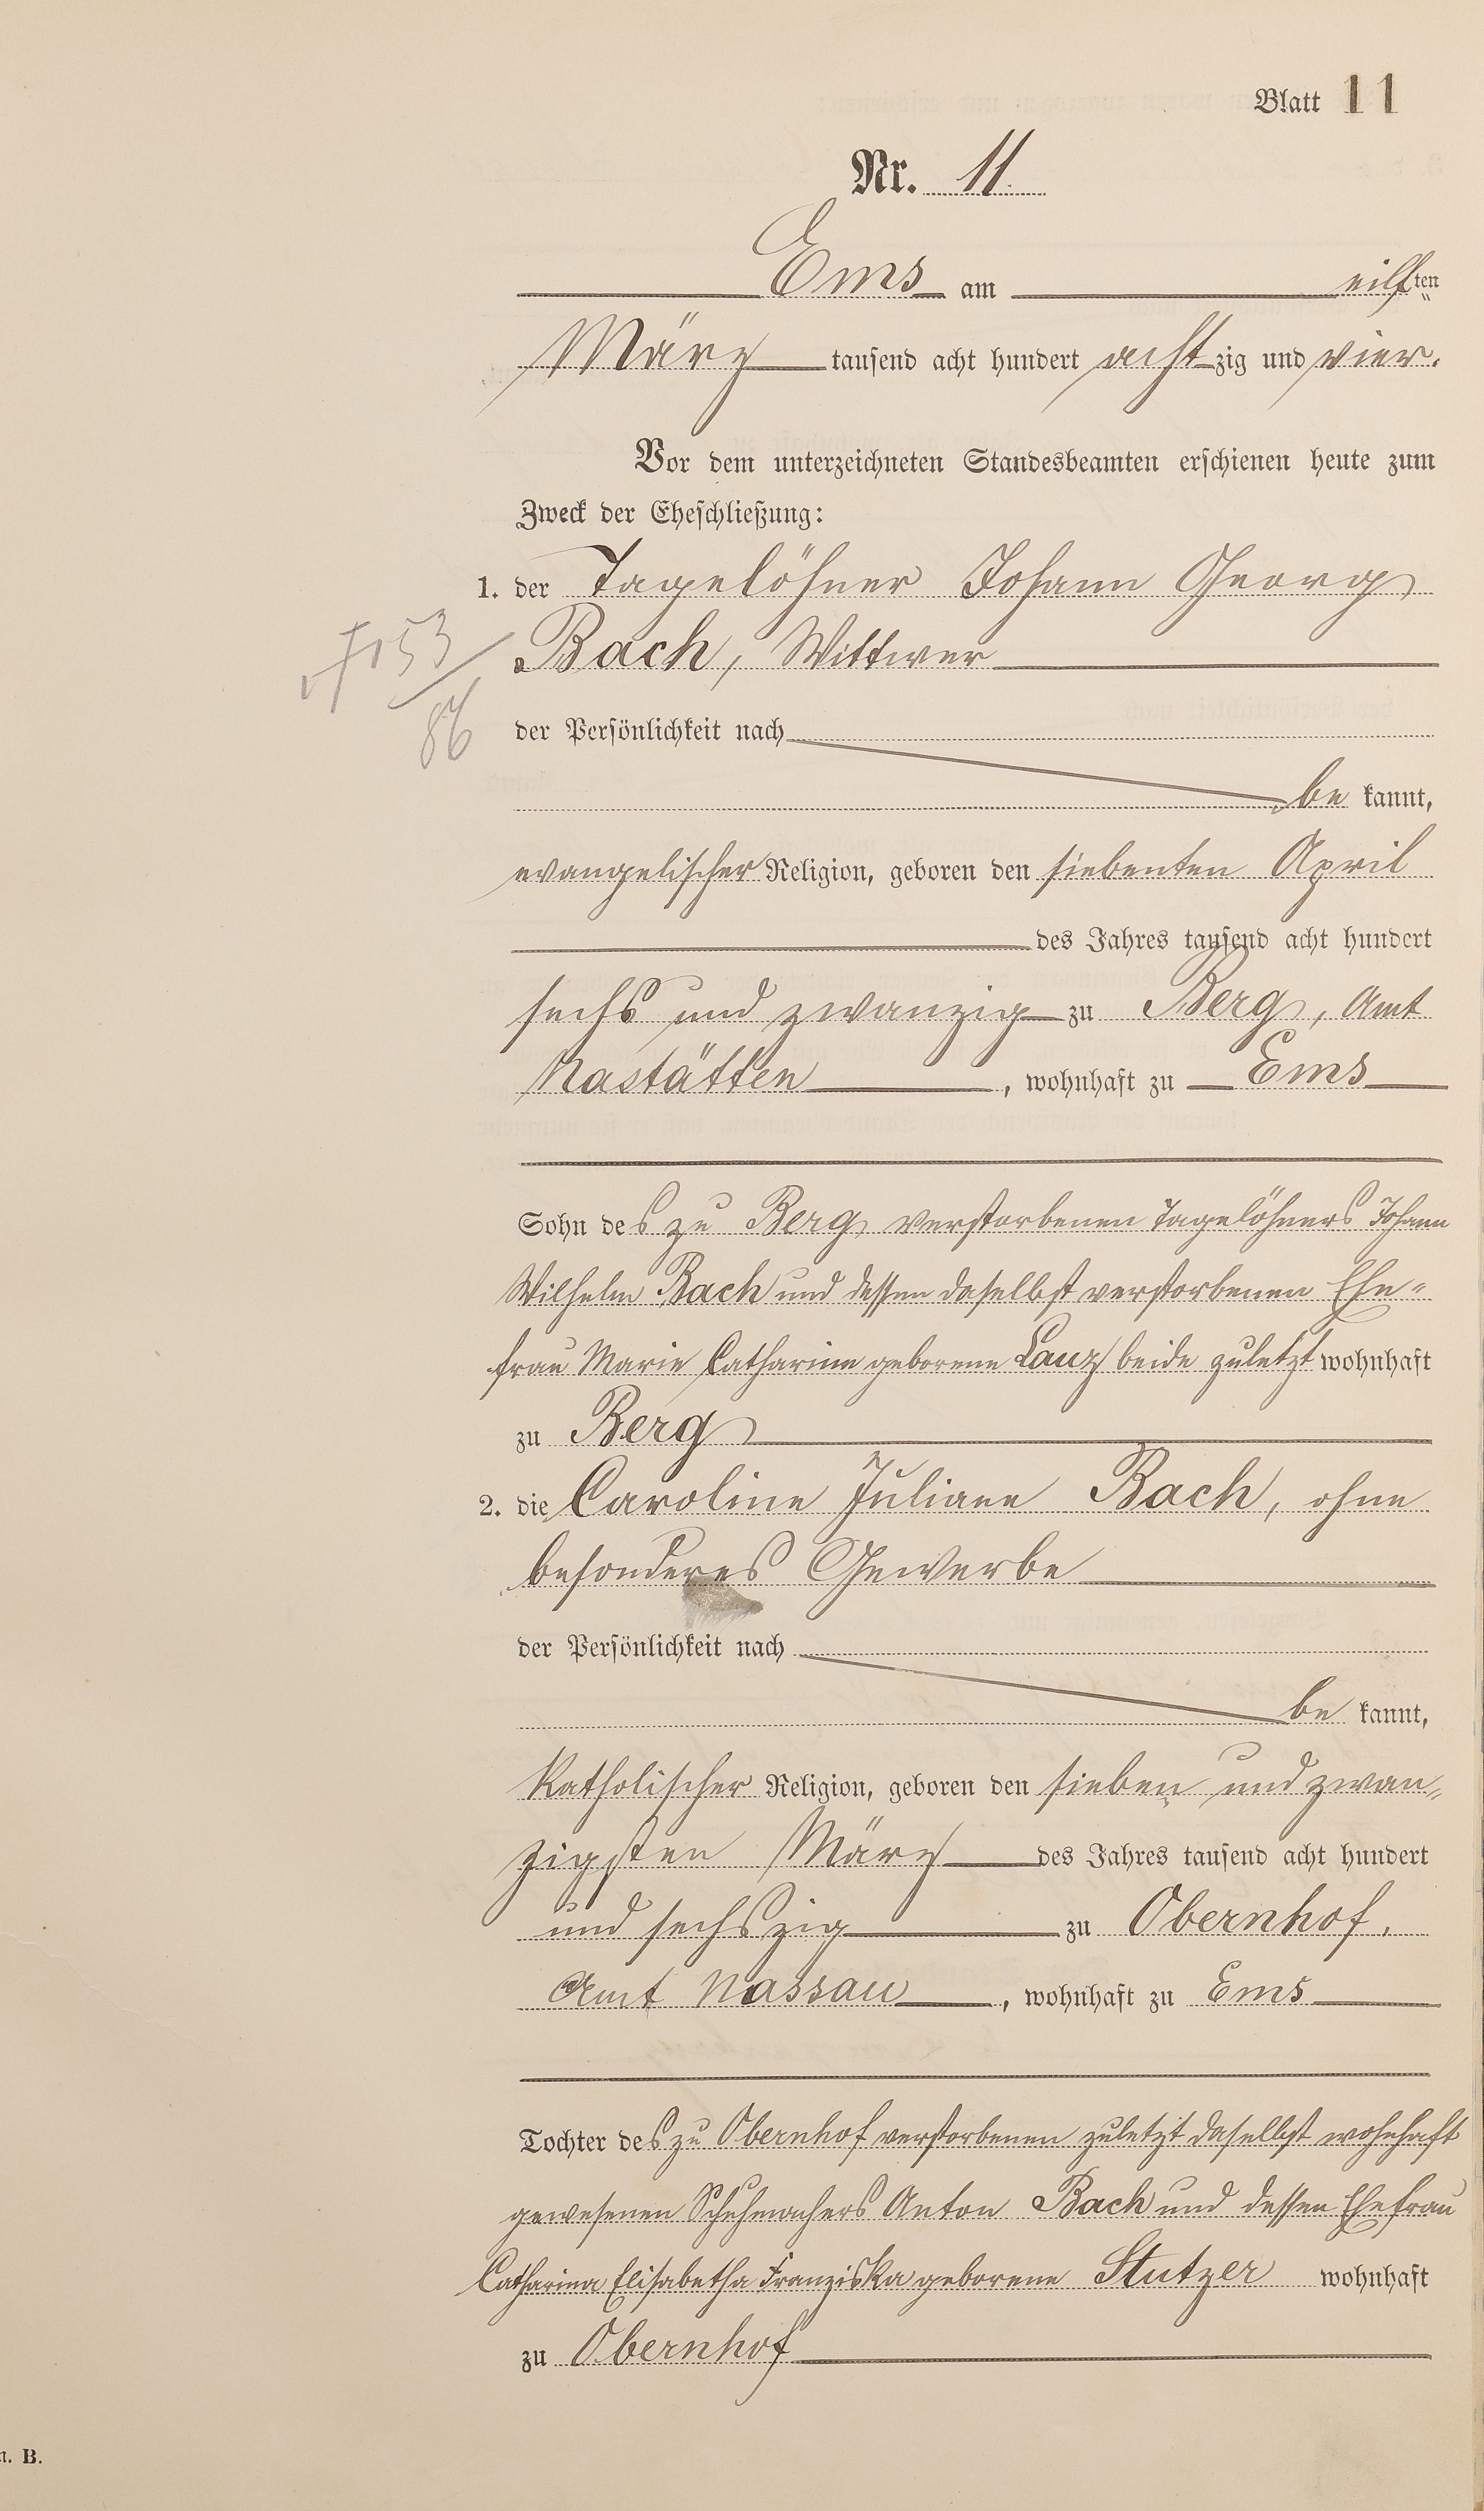 Blatt 11
Nr. 11.
Ems am eilften
März tausend acht hundert achtzig und vier.
Vor dem unterzeichneten Standesbeamten erschienen heute zum
Zweck der Eheschließung:
1. der Tagelöhner Johann Georg
Bach, Wittwer
†153/86
der Persönlichkeit nach
bekannt,
evangelischer Religion, geboren den siebenten April
des Jahres tausend acht hundert
sechs und zwanzig zu Berg, Amt
Nastätten, wohnhaft zu Ems
Sohn des zu Berg verstorbenen Tagelöhners Johann
Wilhelm Bach und dessen daselbst verstorbenen Ehe-
frau Marie Catharine geborene Lanz beide zuletzt wohnhaft
zu Berg
2. die Caroline Juliane Bach, ohne
besonderes Gewerbe
der Persönlichkeit nach
bekannt,
katholischer Religion, geboren den sieben und zwan-
zigsten März des Jahres tausend acht hundert
und sechszig zu Obernhof,
Amt Nassau, wohnhaft zu Ems
Tochter des zu Obernhof verstorbenen zuletzt daselbst wohnhaft
gewesenen Schuhmachers Anton Bach und dessen Ehefrau
Catharina Elisabetha Franziska geborene Stutzer wohnhaft
zu Obernhof
B.